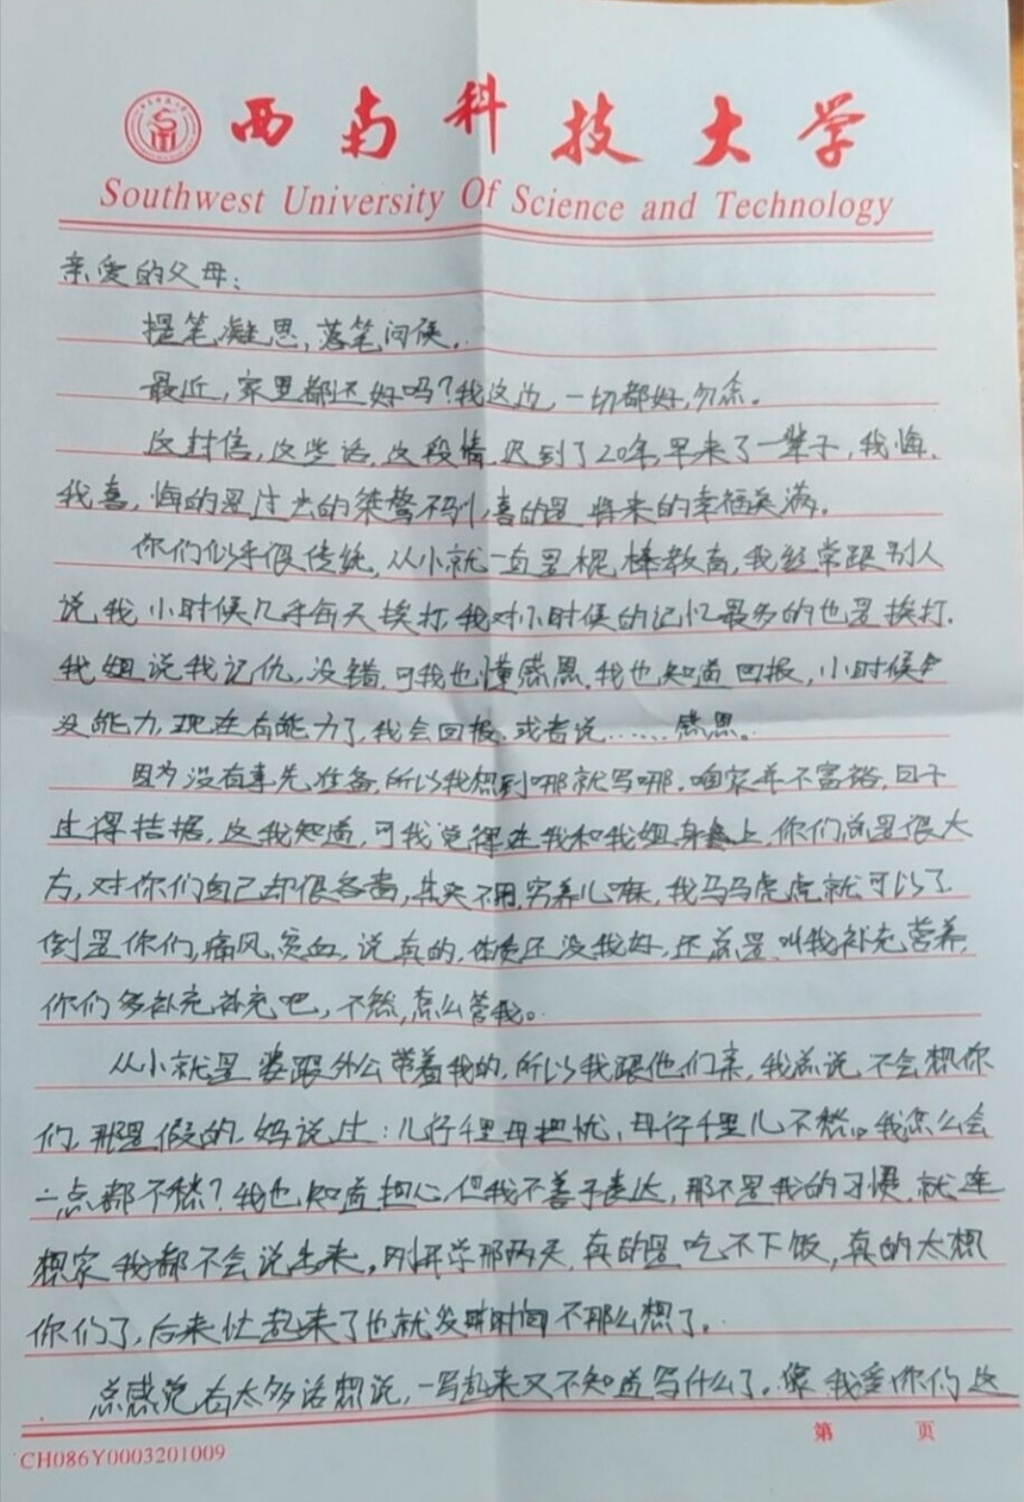 西南科技大学
Southwest University Of Science and Technology
亲爱的父母:
提笔凝思,落笔问候。
最近,家里都还好吗?我这边,一切都好,勿念。
这封信,这些话,这段情,迟到了20年,早来了一辈子,我悔,
我喜,悔的是过去的桀骜不驯,喜的是将来的幸福美满。
你们似乎很传统,从小就一直是棍棒教育,我经常跟别人
说,我小时候几乎每天挨打,我对小时候的记忆最多的也是挨打.
我姐说我记仇,没错,可我也懂感恩,我也知道回报,小时候
没能力,现在有能力了,我会回报,或者说……感恩。
因为没有事先准备,所以我想到哪就写哪,咱家并不富裕,日子
过得拮据,这我知道,可我觉得在我和我姐身上,你们总是很大
方,对你们自己却很吝啬,其实不用,穷养儿嘛,我马马虎虎就可以了
倒是你们,痛风,贫血,说真的,体质还没我好,还总是叫我补充营养,
你们多补充补充吧,不然,怎么管我。
从小就是婆跟外公带着我的,所以我跟他们亲,我总说,不会想你
们,那是假的,妈说过:儿行千里母担忧,母行千里儿不愁。我怎么会
一点都不愁?我也知道担心,但我不善于表达,那不是我的习惯,就连
想家我都不会说出来,刚开学那两天,真的是吃不下饭,真的太想
你们了,后来忙起来了也就没时间不那么想了。
总感觉有太多话想说,一写起来又不知道写什么了。像我爱你们这
第 页
CH086Y0003201009